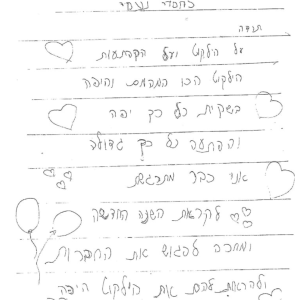 תודה
על הילקוט ועל הקלמר
הילקוט הכי מהמם והיפה
בשקית כל כך יפה
והפתעה כל כך גדולה
אני כבר מתרגשת
לקראת השנה החדשה
ומחכה לפגוש את החברות
ולהראות להם את הילקוט היפה